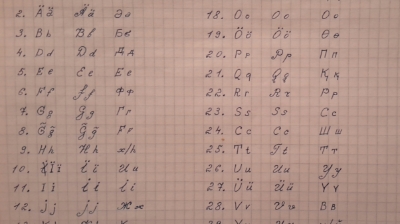 2. Ää Ää Әә
3. Bb Bb Бб
4. Dd Dd Дд
5. Ee Ee Ее
6. Ff Ff Фф
7. Gg Gg Гг
8. Ğğ Ğğ Ғғ
9. Hh Hh х/һ
10. Її Її Ии
11. Ii Ii Іі
12. Jj Jj Жж
18. Oo Oo Оо
19. Öö Öö Өө
20. Pp Pp Пп
21. Qq Qq Ққ
22. Rr Rr Рр
23. Ss Ss Сс
24. Cc Cc Шш
25. Tt Tt Тт
26. Uu Uu Уу
27. Üü Üü Үү
28. Vv Vv Вв